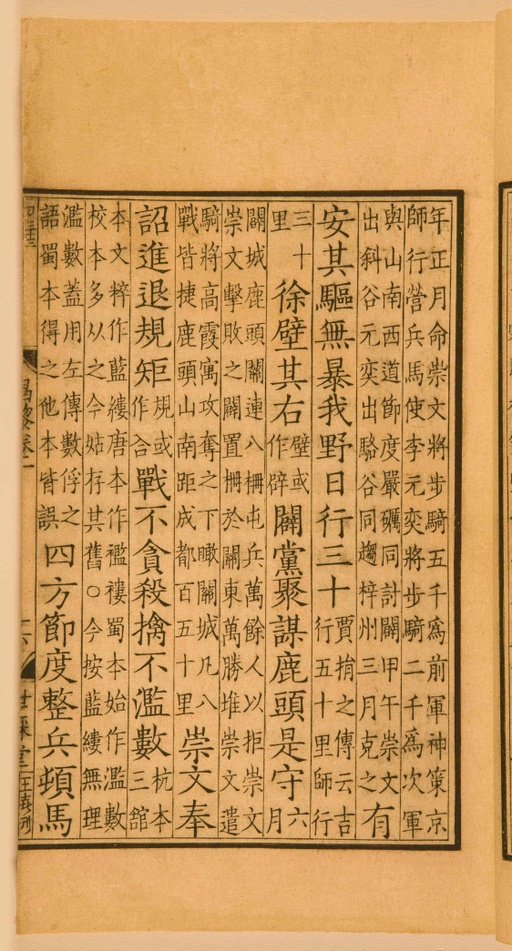 年正月命崇文將步騎五千爲前軍神策京
師行營兵馬使李元奕將步騎二千爲次軍
與山南西道節度嚴礪同討闢甲午崇文
出斜谷元奕出駱谷同趨梓州三月克之
有
安其驅無暴我野日行三十
賈捐之傳云吉
行五十里師行
三十
里
徐壁其右
壁或
作辟
闢黨聚謀鹿頭是守
六
月
闢城鹿頭關連八柵屯兵萬餘人以拒崇文
崇文擊敗之闢置柵於關東萬勝堆崇文遣
騎將高霞寓攻奪之下瞰關城凡八
戰皆捷鹿頭山南距成都百五十里
崇文奉
詔進退規矩
規或
作合
戰不貪殺擒不濫數
杭本
三館
本文粹作藍縷唐本作襤褸蜀本始作濫數
校本多从之今姑存其舊○今按藍縷無理
濫數蓋用左傳數俘之
語蜀本得之他本皆誤
四方節度整兵頓馬
昌黎卷一
六
世綵堂